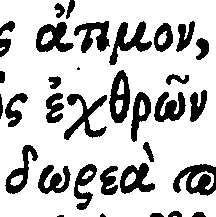 ς ἄτιμον,
ς ἐχθρῶν
δωρεὰ